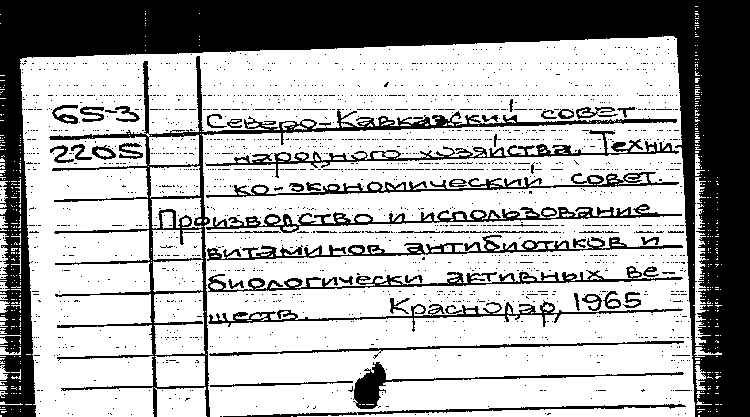 65-3 Северо-Кавказский совет
2205 народного хозяйства. Техни-
ко-экономический совет.
Производство и использование
витаминов антибиотиков и
биологически активных ве-
ществ. Краснодар, 1965